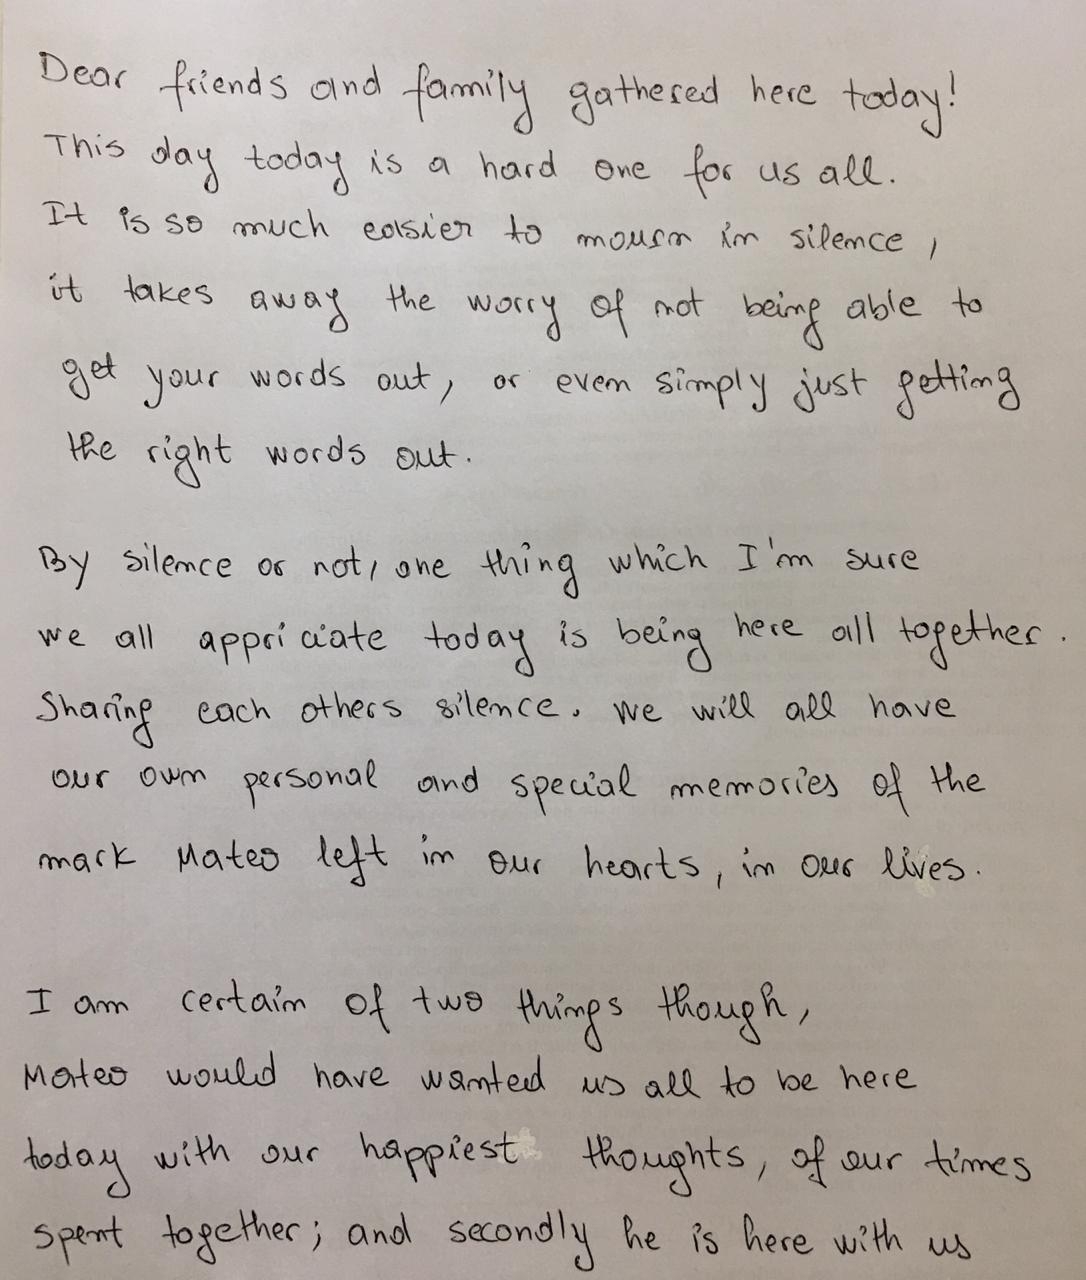 Dear friends and family gathered here today!
This day today is a hard one for us all.
It is so much easier to mourn in silence,
it takes away the worry of not being able to
get your words out, or even simply just getting
the right words out.
By silence or not, one thing which I'm sure
we all appriciate today is being here all together.
Sharing each others silence. We will all have
our own personal and special memories of the
mark Mateo left in our hearts, in our lives.
I am certain of two things though,
Mateo would have wanted us all to be here
today with our happiest thoughts, of our times
spent together; and secondly he is here with us